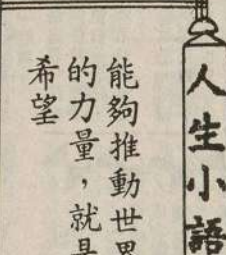 人生小語
能夠推動世界
的力量，就是
希望